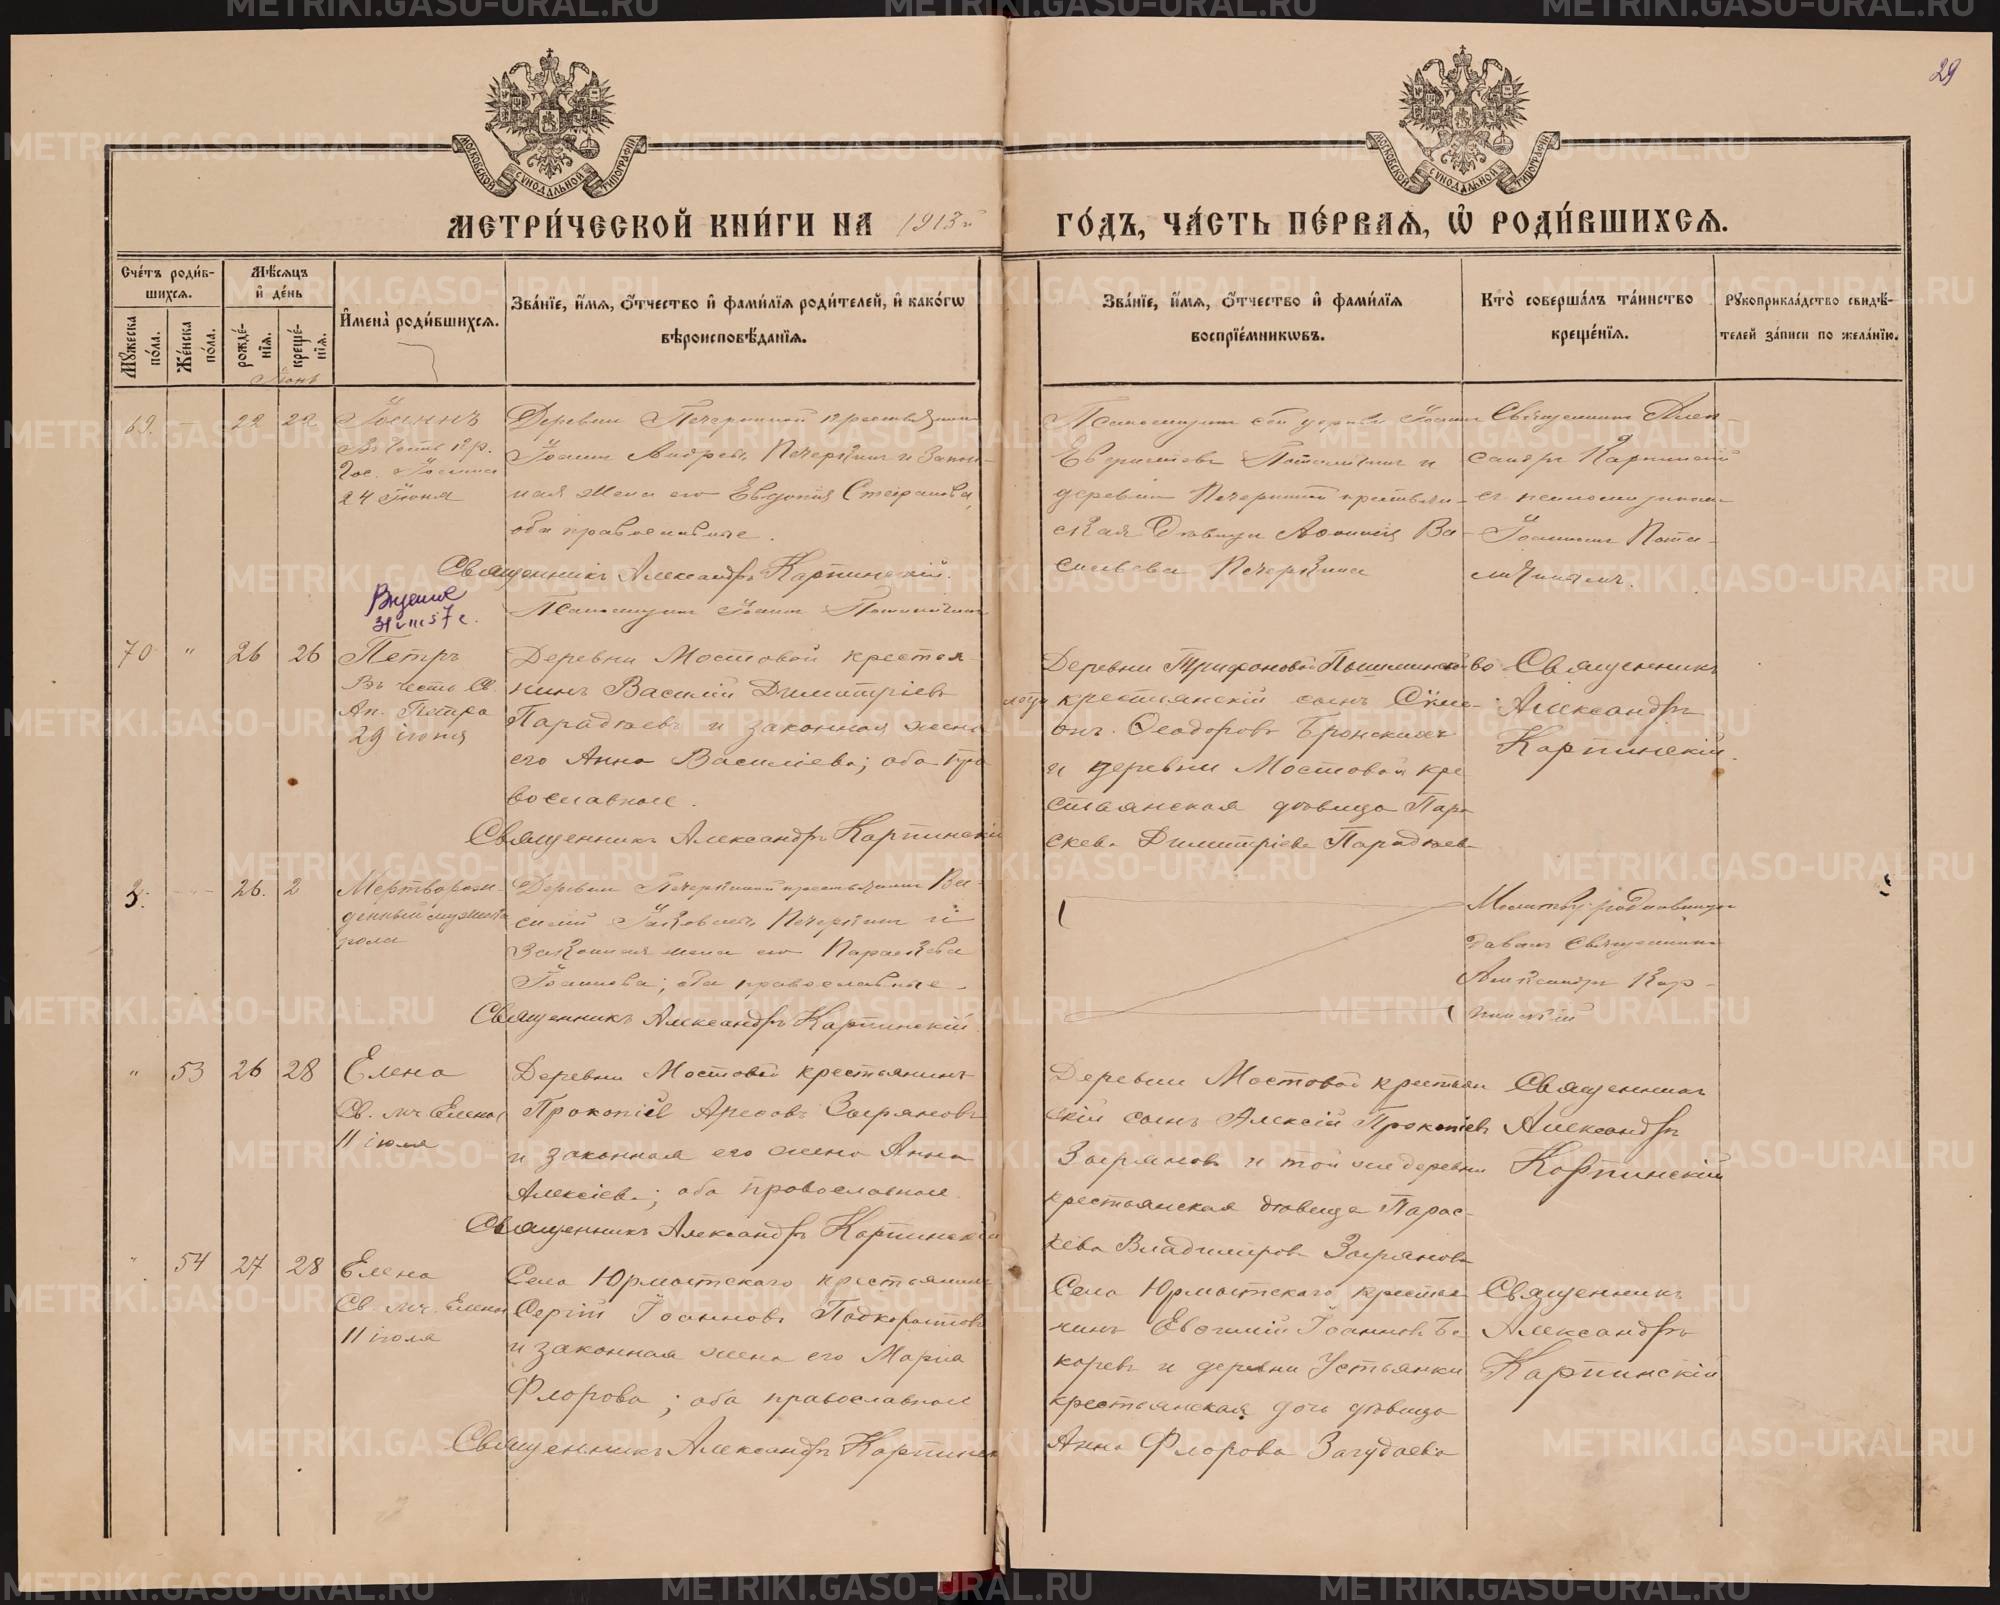 29
МОСКОВСКОЙ СУНОДАЛЬНОЙ ТИПОГРАФІИ
МОСКОВСКОЙ СУНОДАЛЬНОЙ ТИПОГРАФІИ
МЕТРИ́ЧЕСКОЙ КНИ́ГИ НА 1913й
ГО́ДЪ, ЧА́СТЬ ПЕ́РВАЯ, Ѡ҆ РОДИ́ВШИХСЯ.
Сче́тъ роди́в-
шихся.
Мѣ́сяцъ
и҆ де́нь
Мꙋжеска
по́ла.
Же́нска
по́ла.
рожде́-
нїя.
креще́-
нїя.
Имена̀ роди́вшихся.
Зва́нїе, и҆́мя, ѻ҆́тчество и҆ фами́лїя роди́телей, и҆ како́гѡ
вѣроисповѣ́данїя.
Зва́нїе, и҆́мя, ѻ҆́тчество и҆ фами́лїя
воспрїе́мникѡвъ.
Кто̀ соверша́лъ та́инство
креще́нїя.
Рꙋкоприкла́дство свидѣ́-
телей за́писи по жела́нїю.
Іюнь
69. – 22 22 Іоаннъ
24 Іюня
Деревни Печеркиной крестьянинъ
Іоаннъ Андреевъ Печеркинъ и закон-
ная жена его Евдокія Стефанова,
оба православные.
Священникъ Александръ Карпинскій.
Псаломщикъ Іоаннъ
Псаломщикъ сей церкви Іоаннъ
и
деревни Печеркиной крестьян-
ская дѣвица Ва-
сильева Печеркина
Священникъ Алек-
сандръ Карпинскій
съ псаломщикомъ
Іоанномъ
70 " 26 26 Петръ
Въ честь Св.
Ап. Петра
29 іюня
Деревни Мостовой крестья-
нинъ Василій Димитріевъ
Парадѣевъ и законная жена
его Анна Василіева; оба пра
вославные.
Священникъ Александръ Карпинскій
Деревни Трифоновой Пышминской во
лости крестьянскій сынъ Сѵме-
онъ Ѳеодоровъ Бронскихъ
и деревни Мостовой кре
стьянская дѣвица Пара
скева Димитріева Парадѣева
Священникъ
Александръ
Карпинскій.
3. 26. 2 Мертворож-
денный мужского
пола
Деревни Печеркиной крестьянинъ Ва-
силій Іаковлевъ Печеркинъ и
законная жена его Параскева
Іоаннова; оба православные.
Священникъ Александръ Карпинскій
Молитву родильницѣ
давалъ Священникъ
Александръ Кар-
пинскій
" 53 26 28 Елена
Св. мч. Елены
11 іюля
Деревни Мостовой крестьянинъ
Прокопій Зыряновъ
и законная его жена Анна
Алексіева; оба православные.
Священникъ Александръ Карпинскій
Деревни Мостовой крестьян
скій сынъ Алексій Прокопіевъ
Зыряновъ и той же деревни
крестьянская дѣвица Парас-
кева Владимірова Зырянова
Священникъ
Александръ
Карпинскій
" 54 27 28 Елена
Св. мч. Елены
11 іюля
Села Юрмытского крестьянинъ
Сергій Іоанновъ Подкорытовъ
и законная жена его Марія
Флорова; оба православные
Священникъ Александръ Карпинск
Села Юрмытского крестья
нинъ Евѳимій Іоанновъ Бо
коревъ и деревни Устьянки
крестьянская дочь дѣвица
Анна Флорова Загудаева
Священникъ
Александръ
Карпинскій
METRIKI.GASO-URAL.RU